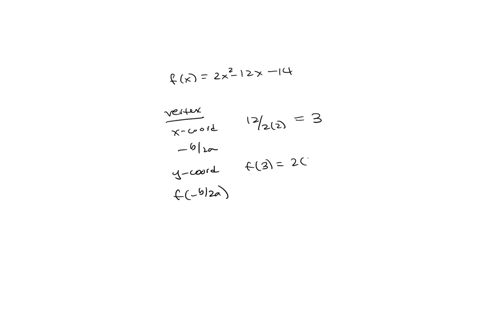 f(x) = 2x²-12x-14
vertex
x-coord 12/2(2) = 3
-b/2a
y-coord f(3) = 2(
f(-b/2a)